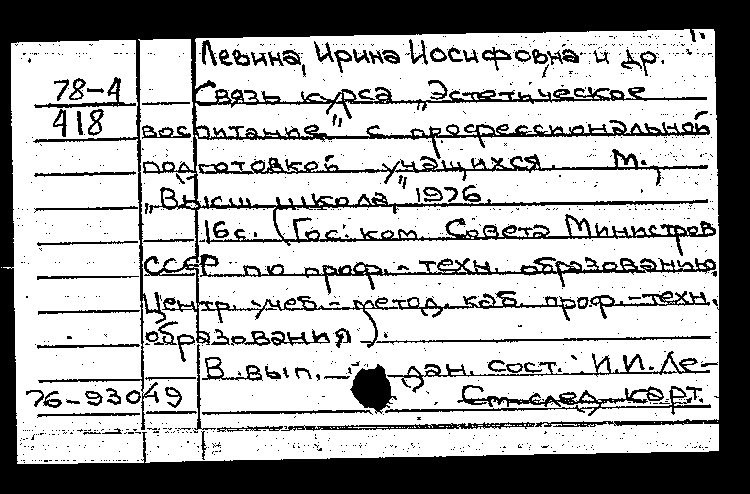 1.
Левина, Ирина Иосифовна и др.
78-4 Связь курса „Эстетическое
418 воспитание" с профессиональной
подготовкой учащихся. М.,
„Высш. школа", 1976.
16с. (Гос. ком. Совета Министров
СССР по проф.-техн. образованию.
Центр. учеб.-метод. каб. проф.-техн.
образования).
В вып. дан. сост.: И.И. Ле-
76-93049 См. след. карт.